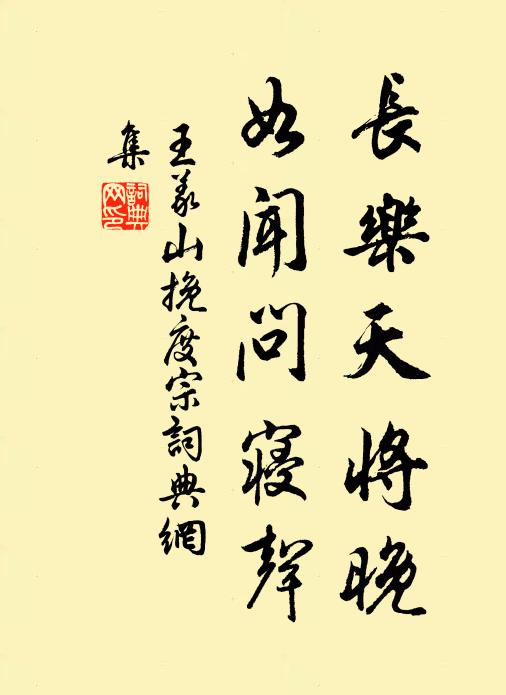 長樂天將晚
如聞問寢聲
王義山挽度宗詞典網
集
詞典
網印